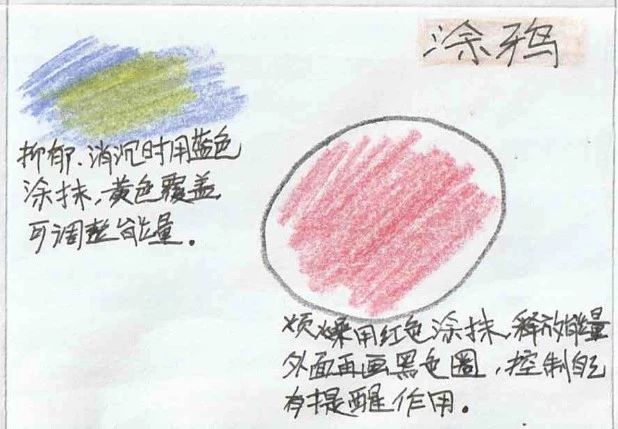 涂鸦
抑郁、消沉时用蓝色
涂抹，黄色覆盖
可调整能量。
烦燥用红色涂抹，释放能量
外面再画黑色圈，控制自己
有提醒作用。